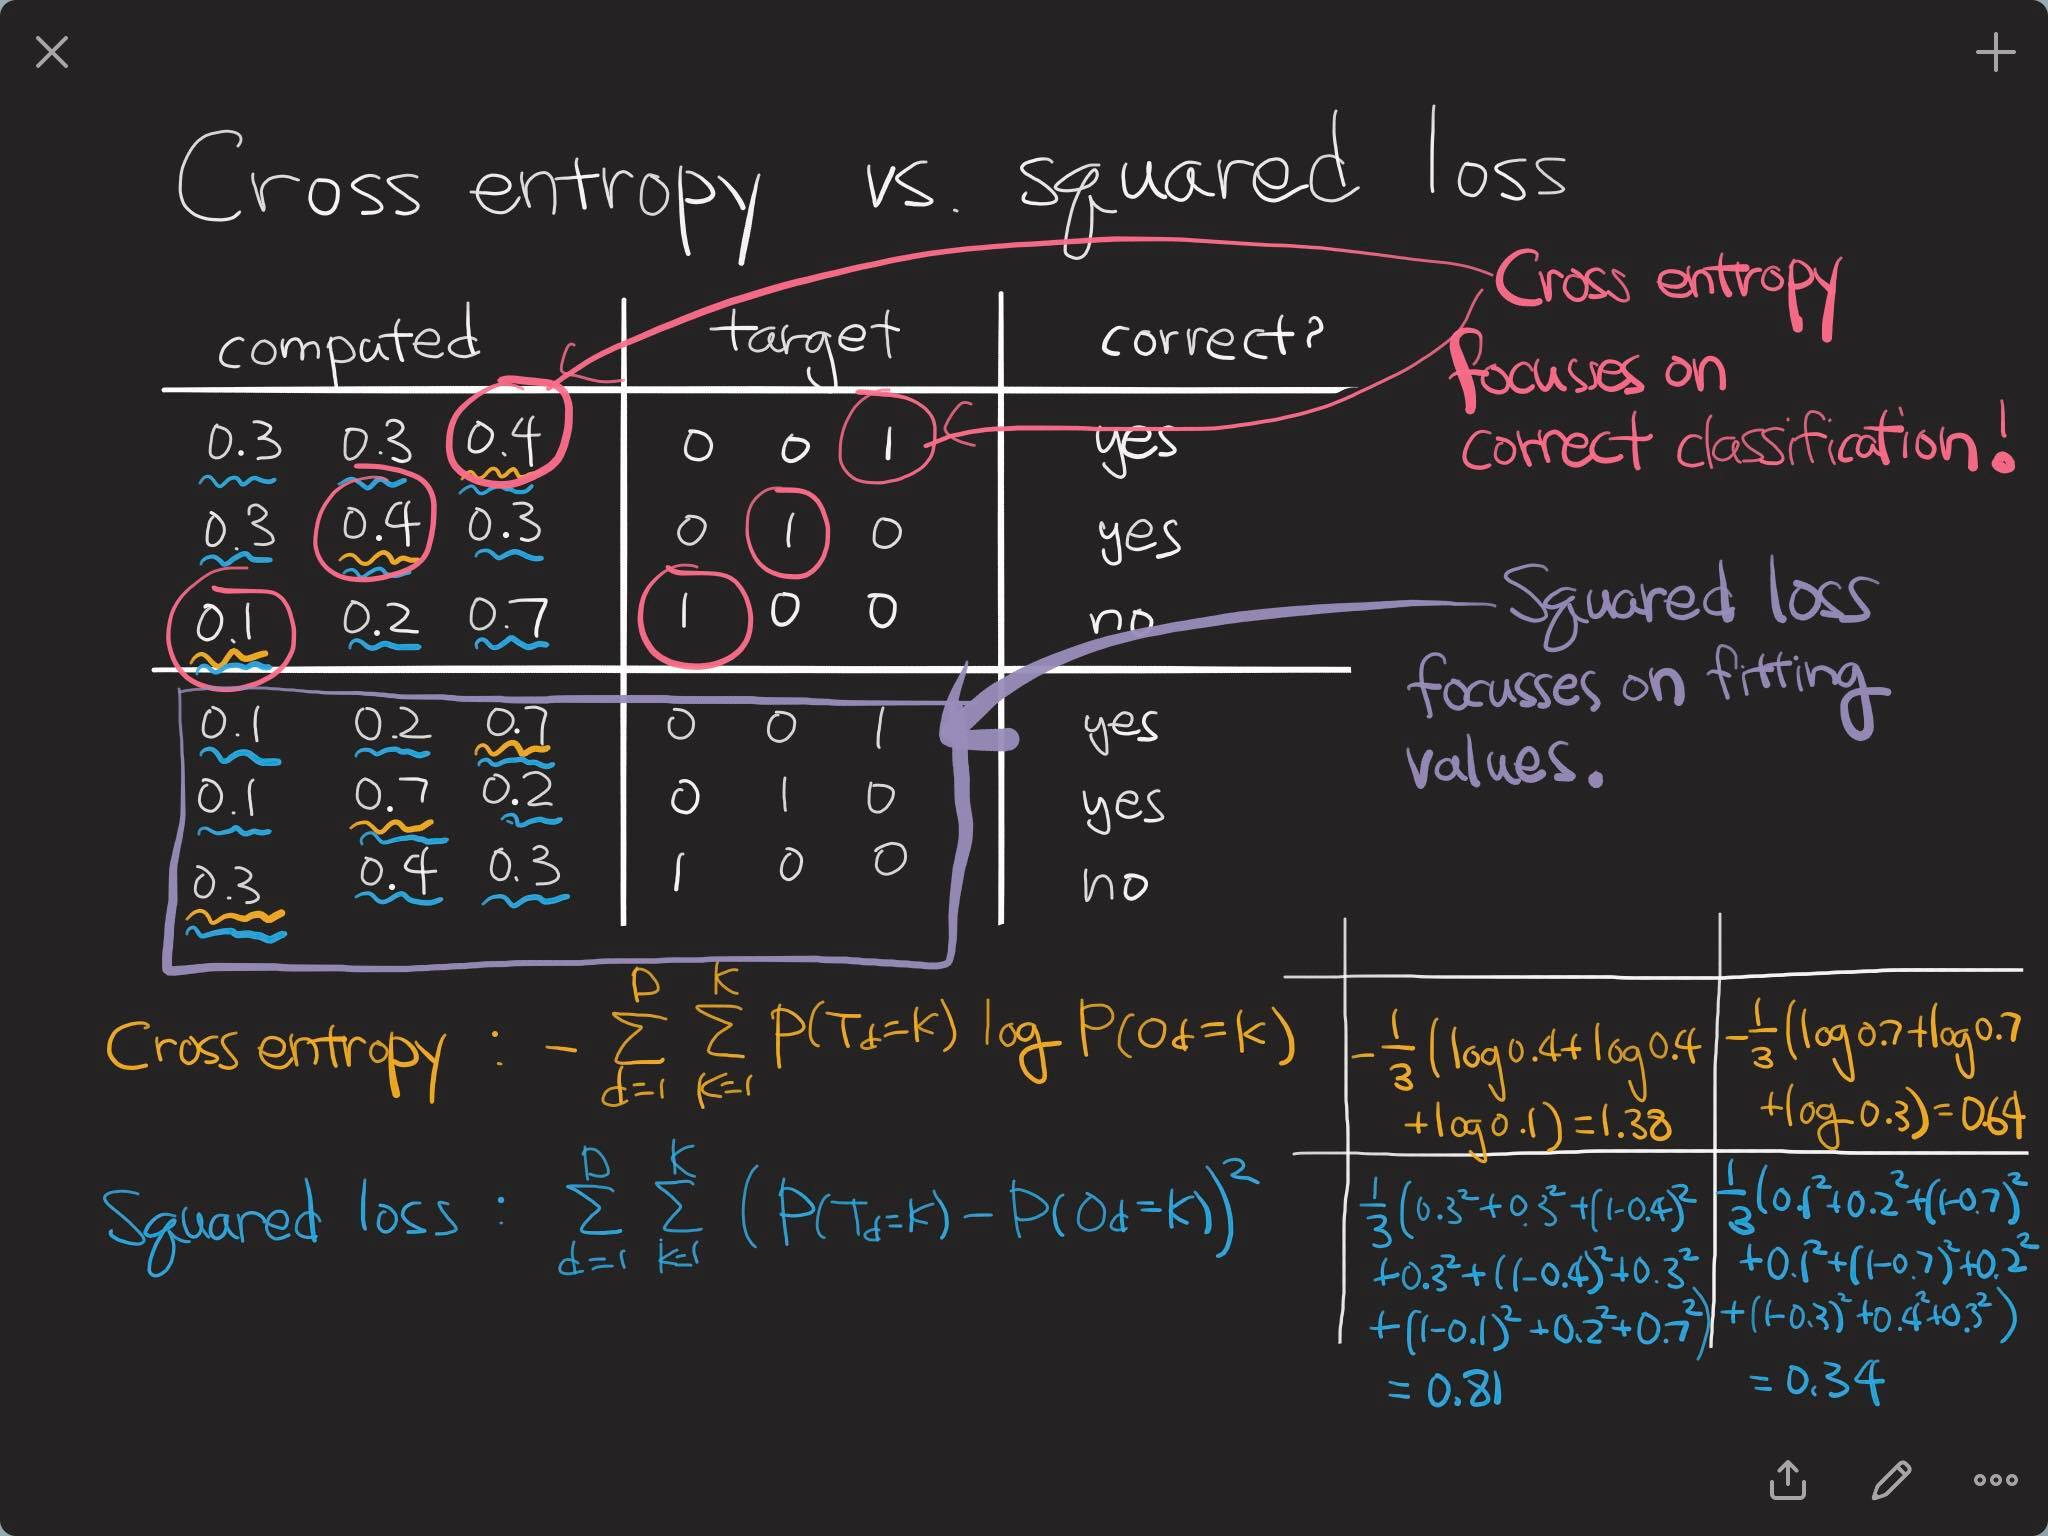 Cross entropy vs. squared loss
computed target correct?
0.3 0.3 0.4 0 0 1 yes
0.3 0.4 0.3 0 1 0 yes
0.1 0.2 0.7 1 0 0 no
0.1 0.2 0.7 0 0 1 yes
0.1 0.7 0.2 0 1 0 yes
0.3 0.4 0.3 1 0 0 no
Cross entropy
focusses on
correct classification!
Squared loss
focusses on fitting
values.
Cross entropy : - ∑_{d=1}^{D} ∑_{K=1}^{K} P(T_d=K) log P(O_d=K)
Squared loss : ∑_{d=1}^{D} ∑_{k=1}^{K} (P(T_d=K) - P(O_d=K))²
-1/3 (log0.4+log0.4
+log0.1) = 1.38
-1/3 (log0.7+log0.7
+log0.3) = 0.64
1/3 (0.3²+0.3²+(1-0.4)²
+0.3²+(1-0.4)²+0.3²
+(1-0.1)²+0.2²+0.7²)
= 0.81
1/3 (0.1²+0.2²+(1-0.7)²
+0.1²+(1-0.7)²+0.2²
+(1-0.3)²+0.4²+0.3²)
= 0.34